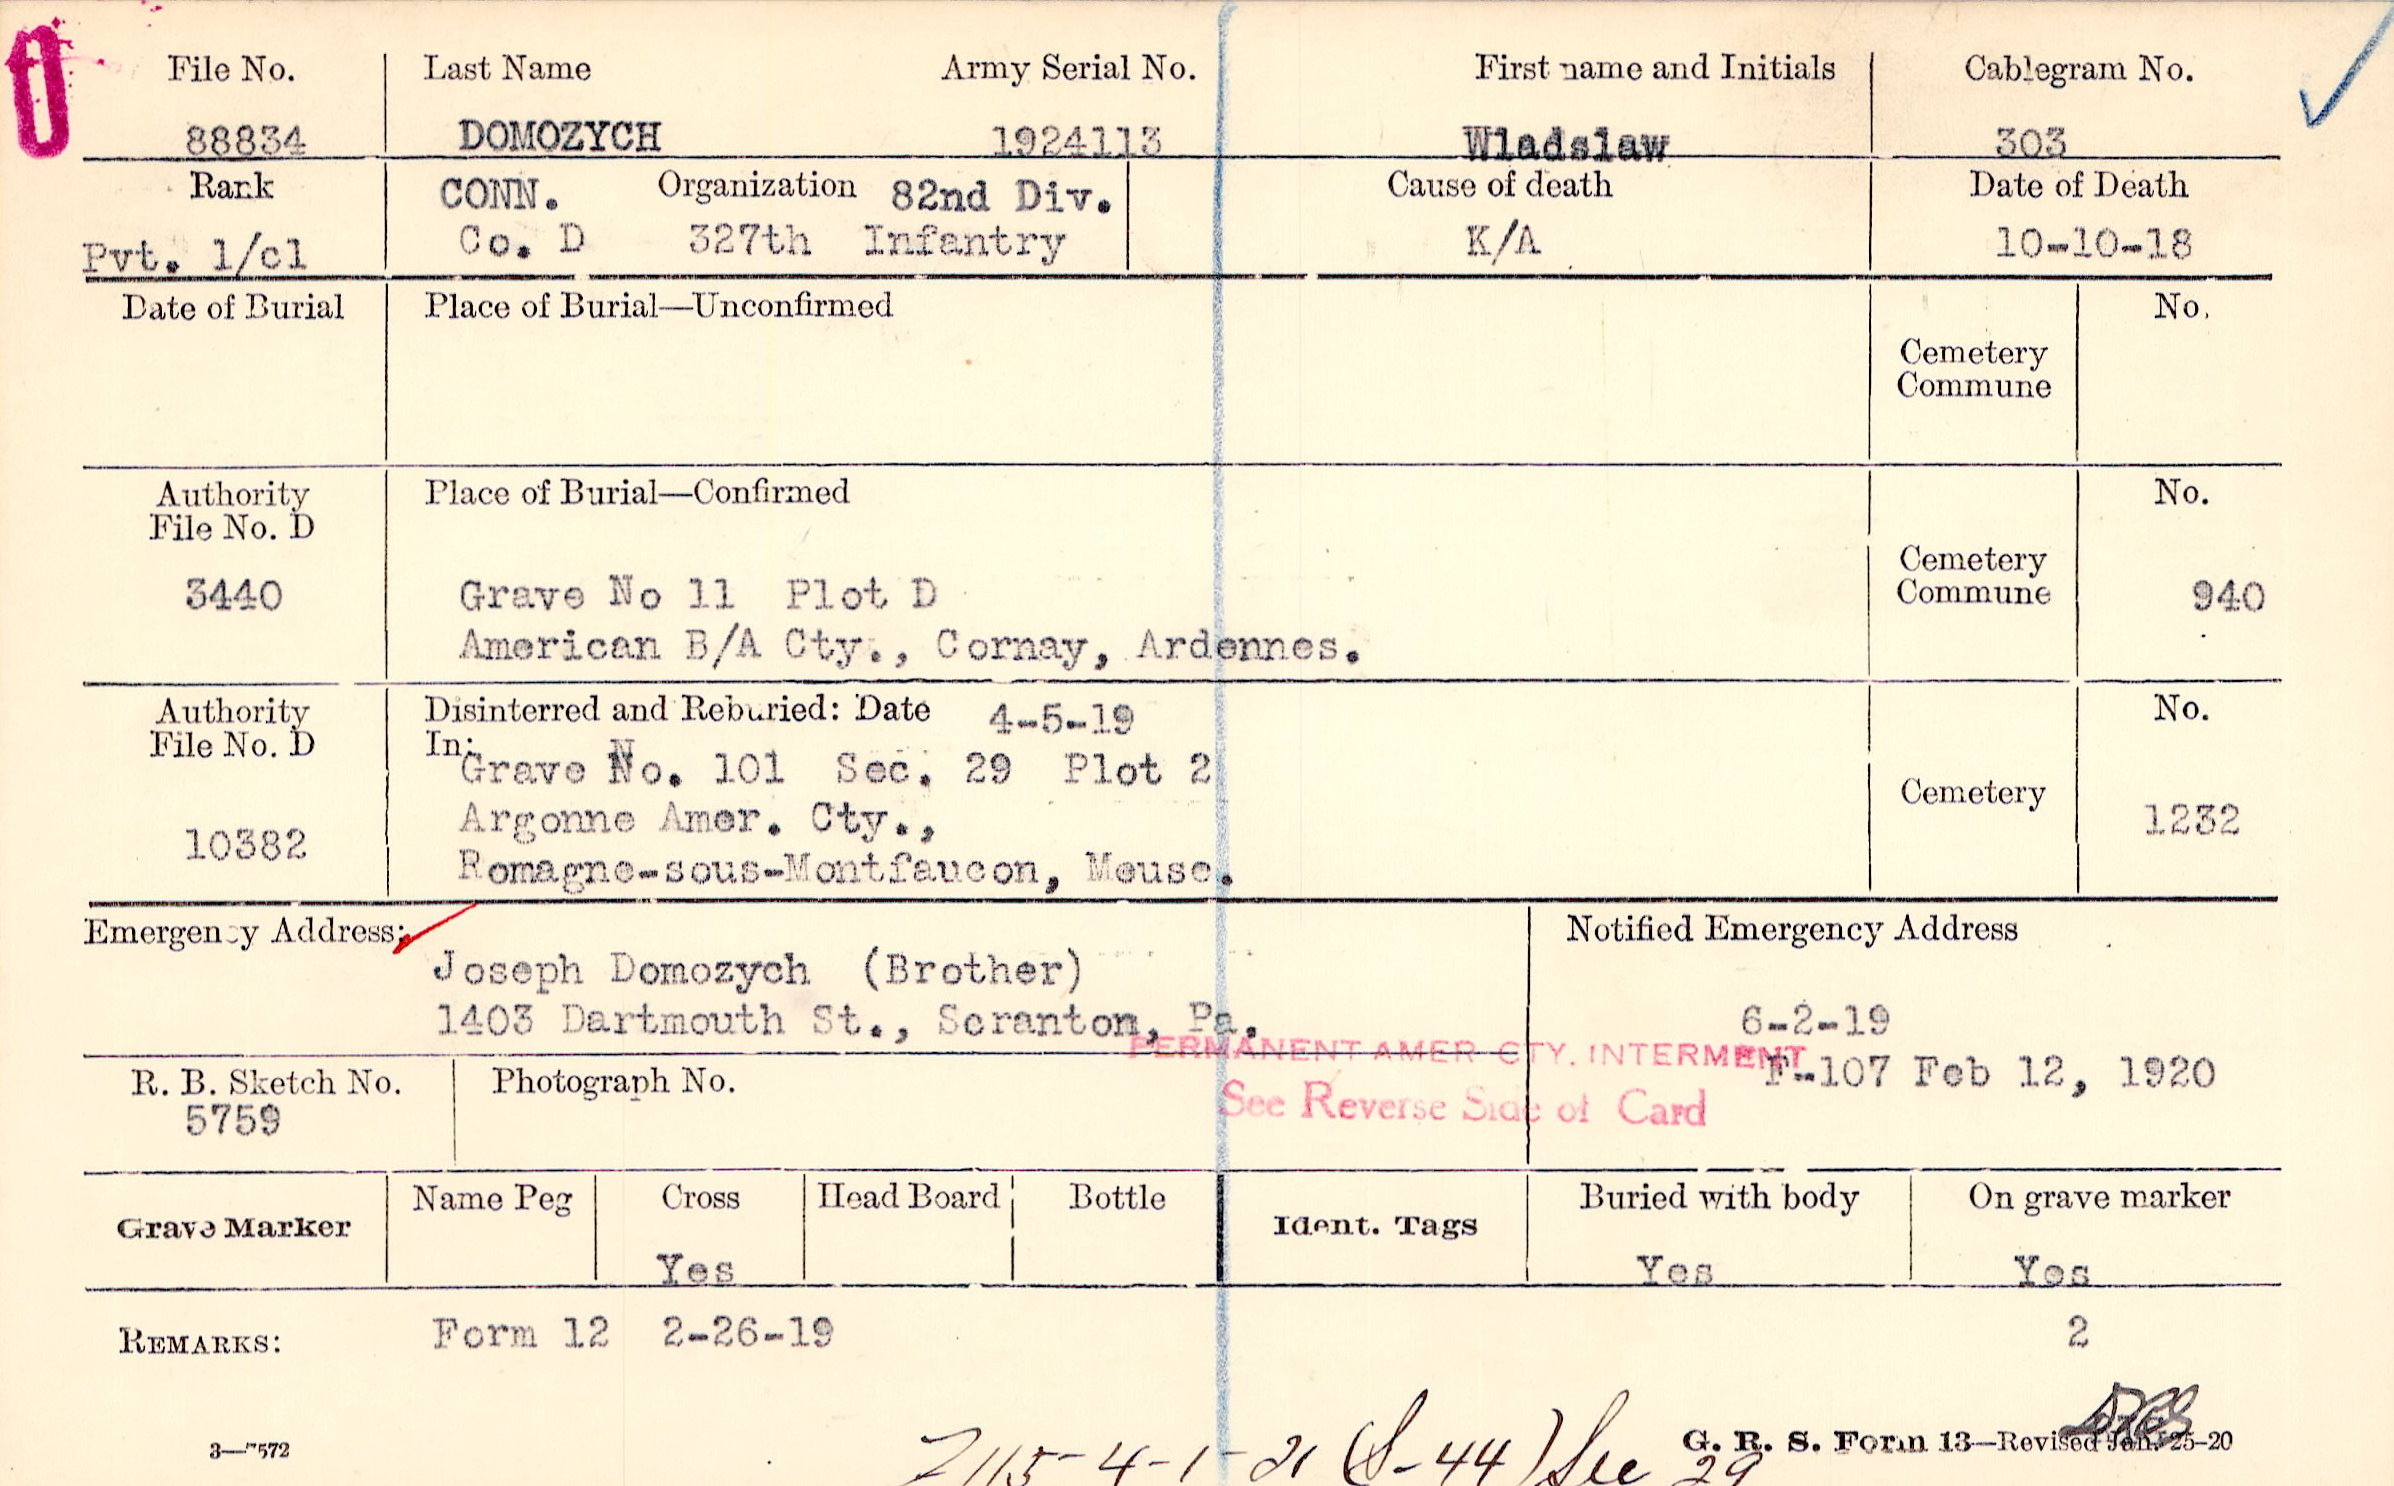 File No. Last Name Army Serial No. First name and Initials Cablegram No.
88834 DOMOZYCH 1924113 Wladslaw 303
Rank CONN. Organization 82nd Div. Cause of death Date of Death
Pvt. 1/cl Co. D 327th Infantry K/A 10-10-18
Date of Burial Place of Burial—Unconfirmed No.
Cemetery
Commune
Authority Place of Burial—Confirmed No.
File No. D
Cemetery
3440 Grave No 11 Plot D Commune 940
American B/A Cty., Cornay, Ardennes.
Authority Disinterred and Reburied: Date 4-5-19 No.
File No. D In:
Grave No. 101 Sec. 29 Plot 2
Cemetery
10382 Argonne Amer. Cty., 1232
Romagne-sous-Montfaucon, Meuse.
Emergency Address: Notified Emergency Address
Joseph Domozych (Brother)
1403 Dartmouth St., Scranton, Pa. 6-2-19
PERMANENT AMER CTY. INTERMENT
F-107 Feb 12, 1920
R. B. Sketch No. Photograph No. See Reverse Side of Card
5759
Grave Marker Name Peg Cross Head Board Bottle Ident. Tags Buried with body On grave marker
Yes Yes Yes
REMARKS: Form 12 2-26-19 2
3—7572 G. R. S. Form 13—Revised Jan. 25-20
4-1-21 (S-44) See 29